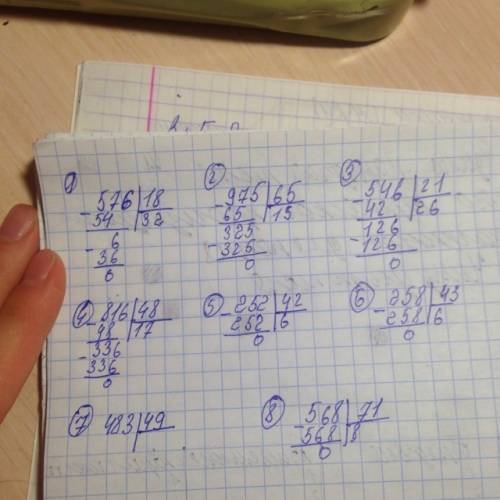 1) 576 | 18
- 54 | 32
- 6
36
0
2) - 975 | 65
65 | 15
- 325
325
0
3) - 546 | 21
42 | 26
- 126
126
0
4) - 816 | 48
48 | 17
- 336
336
0
5) - 252 | 42
252 | 6
0
6) - 258 | 43
258 | 6
0
7) 483 | 49
8) - 568 | 71
568 | 8
0